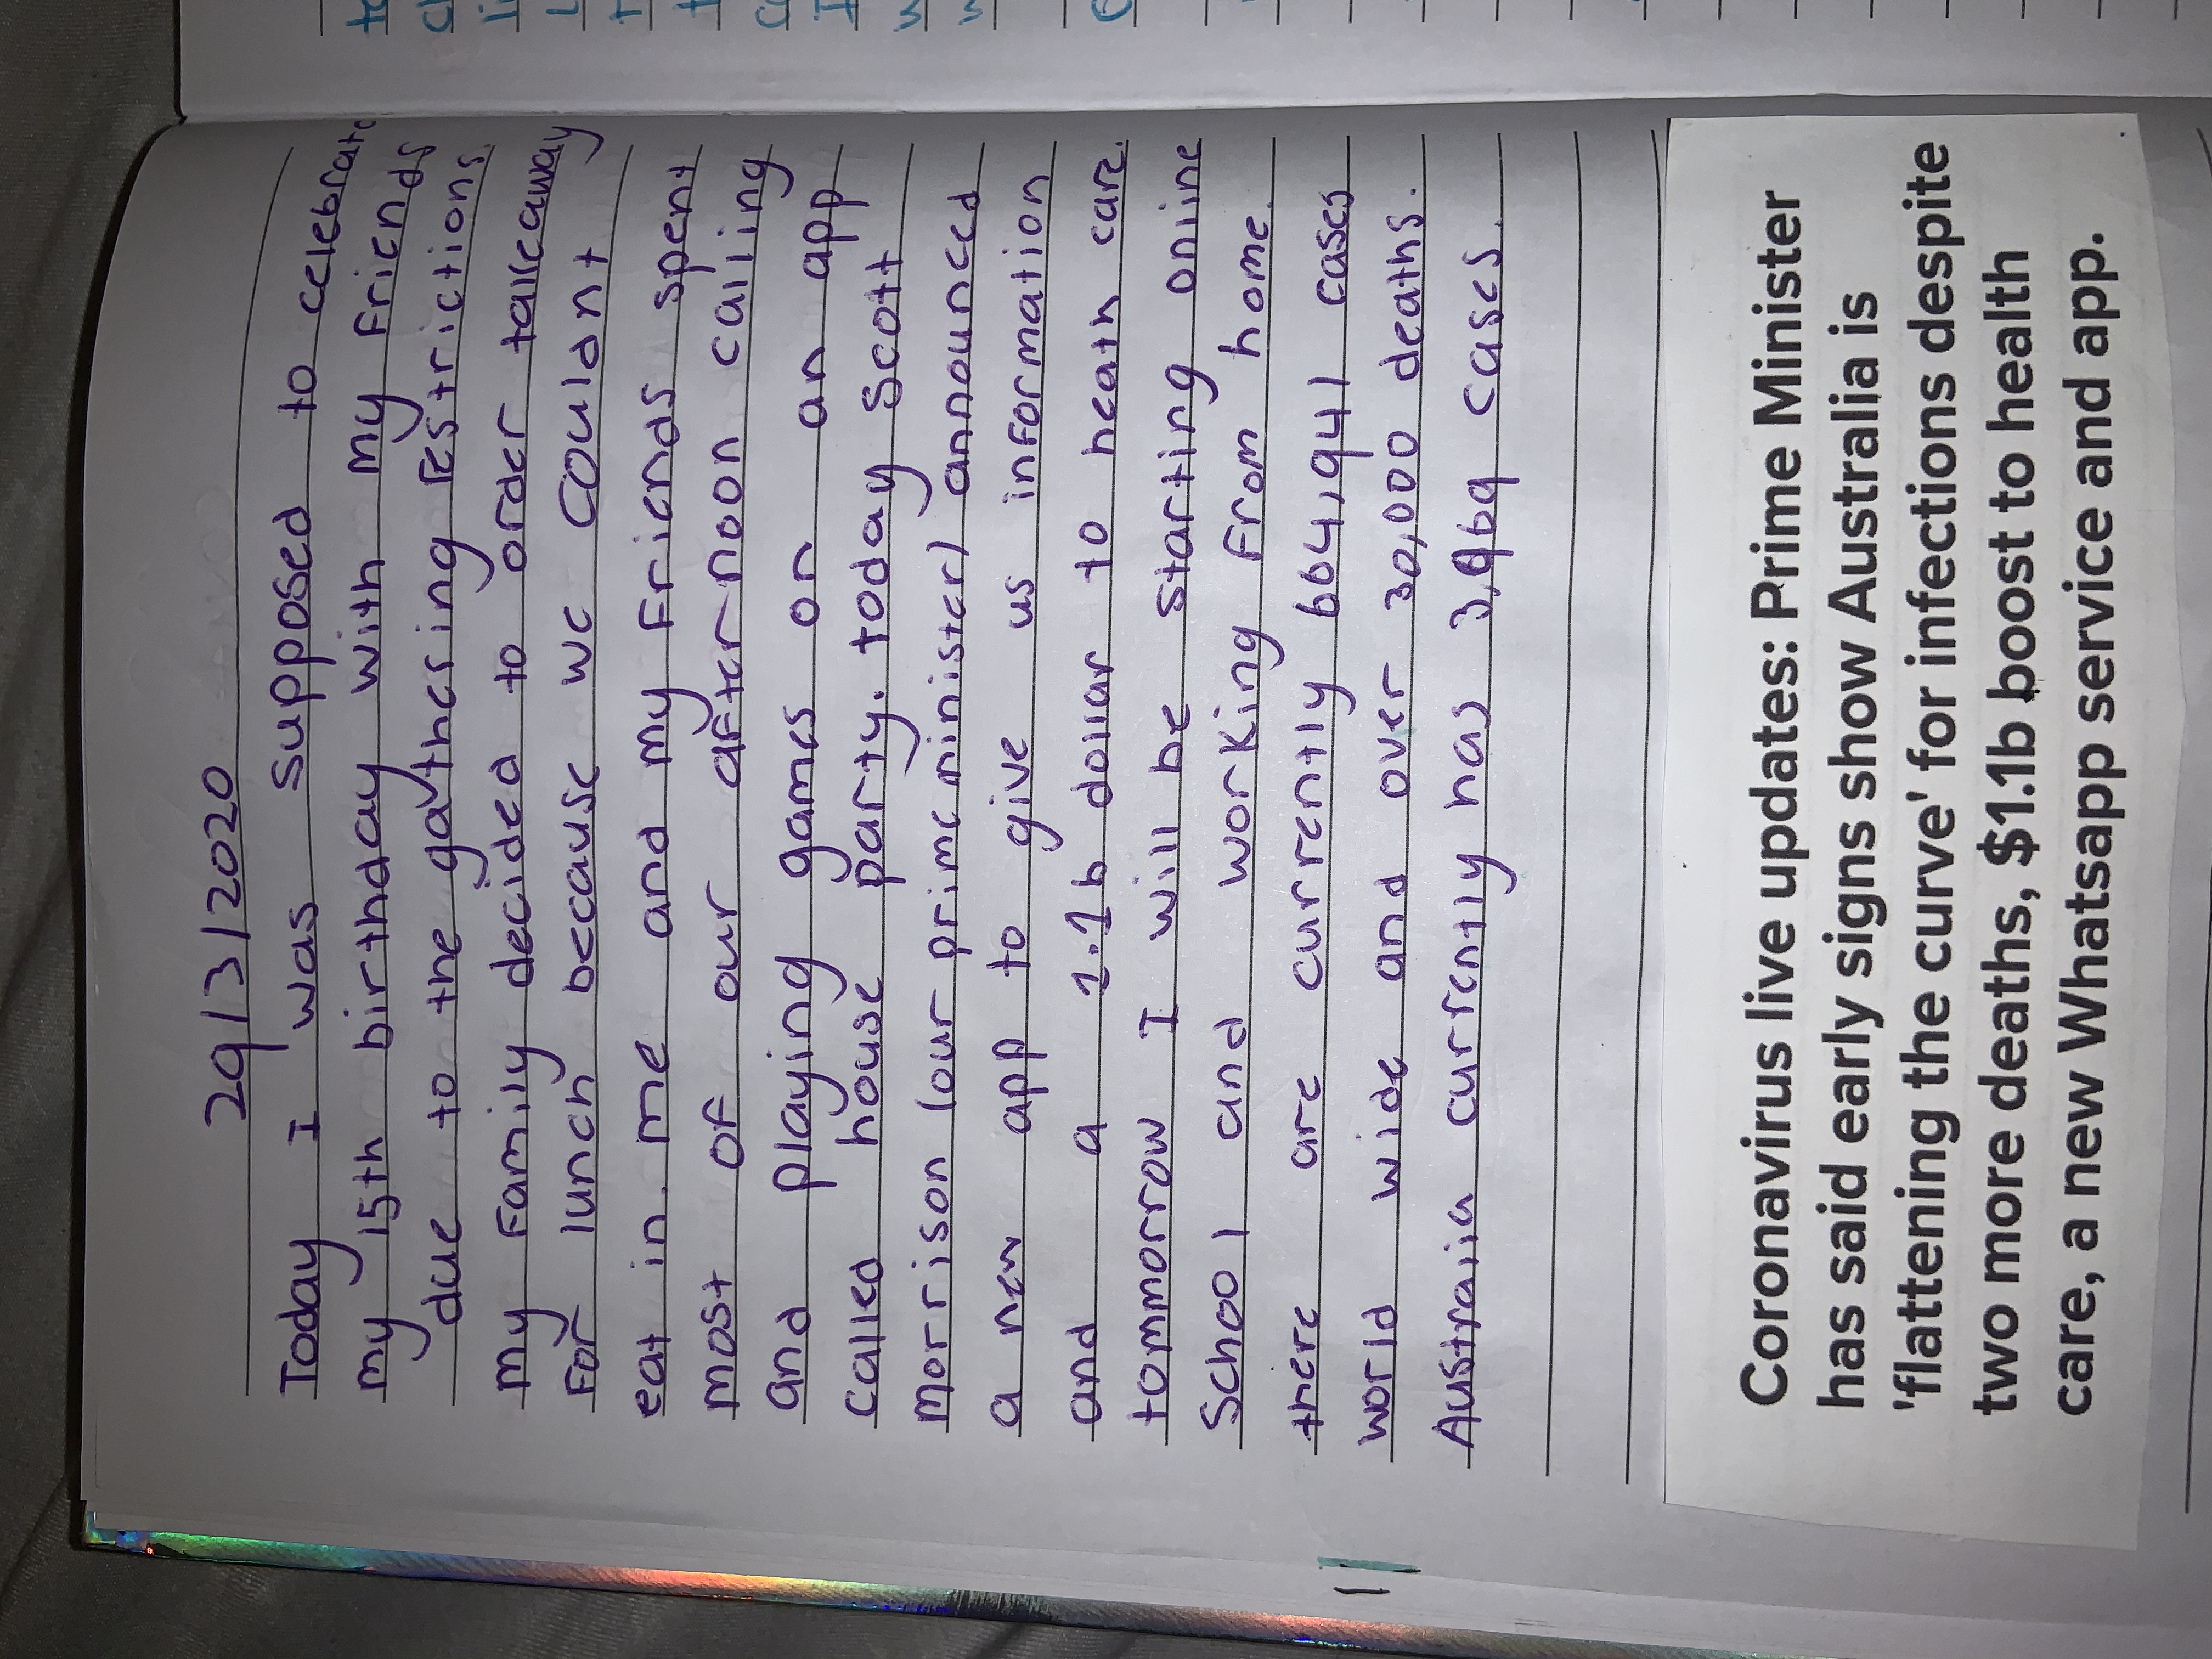 29/3/2020
Today I was supposed to celebrate
my 15th birthday with my friends
due to the gathering restrictions.
my Family decided to order takeaway
For lunch because we couldnt
eat in. me and my Friends spent
most of our afternoon calling
and playing games on an app
called house party. today scott
morrison (our prime minister) announced
a new app to give us information
and a 1.1b dollar to heath care.
tommorrow I will be starting online
School and working from home.
there are currently 664,941 cases
world wide and over 30,000 deaths.
Australia currently has 3,969 cases.
Coronavirus live updates: Prime Minister
has said early signs show Australia is
'flattening the curve' for infections despite
two more deaths, $1.1b boost to health
care, a new Whatsapp service and app.